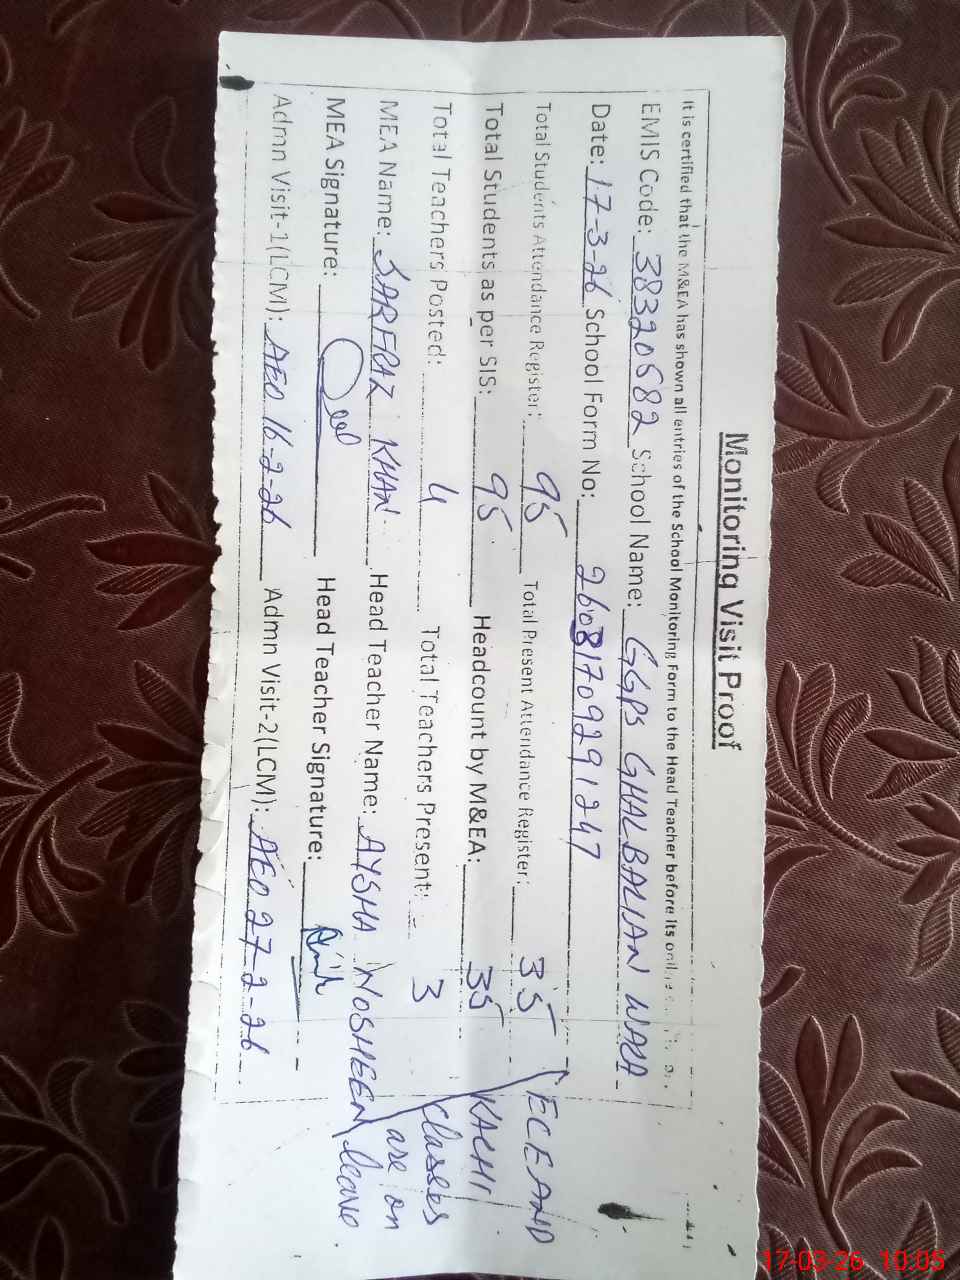 Monitoring Visit Proof
It is certified that the M&EA has shown all entries of the School Monitoring Form to the Head Teacher before its
EMIS Code: 38320582 School Name: GGPS GHALBALIDAN WALA
Date: 17-3-26 School Form No: 26081709291247
Total Students Attendance Register: 95 Total Present Attendance Register: 35
Total Students as per SIS: 95 Headcount by M&EA: 35
Total Teachers Posted: 4 Total Teachers Present: 3
MEA Name: SARFRAZ KHAN Head Teacher Name: AYSHA NOSHEEN
MEA Signature: Head Teacher Signature:
Admn Visit-1(LCM): AEO 16-2-26 Admn Visit-2(LCM): AEO 27-2-26
ECE AND
KACHI
classes
are on
leave
17-03-26 10:05